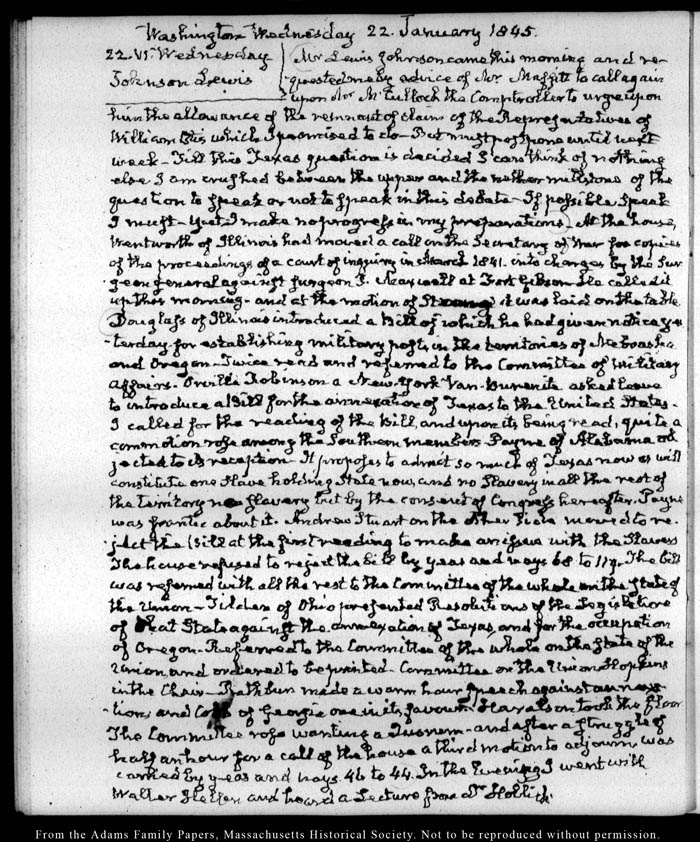 Washington Wednesday 22. January 1845.
22. VI. Wednesday
Johnson Lewis
Mr Lewis Johnson came this morning and re-
quested me by advice of Mr. Maffitt to call again
upon Mr McCulloch the Comptroller to urge upon
him the allowance of the remnant of claim of the Representatives of
William Otis which I promised to do – But must postpone until next
week – Till this Texas question is decided I can think of nothing
else I am crushed between the upper and the nether millstone of the
question to speak or not to speak in this debate – If possible speak
I must – yet I make no progress in my preparations – At the house,
Wentworth of Illinois had moved a call on the Secretary of War for copies
of the proceedings of a court of inquiry in March 1841. into charges by the Sur-
geon general against Surgeon J. Maxwell at Fort Gibson He called it
up this morning – and at the motion of it was laid on the table
Douglass of Illinois introduced a Bill of which he had given notice yes-
terday for establishing military posts in the territories of Nebraska
and Oregon – Twice read and referred to the Committee of Military
affairs. Orville Robinson a New-York Van-Burenite asked leave
to introduce a Bill for the annexation of Texas to the United States –
I called for the reading of the Bill, and upon its being read, quite a
commotion rose among the Southern members Payne of Alabama ob-
jected to its reception – It proposes to admit so much of Texas now as will
constitute one Slave holding State now, and no Slavery in all the rest of
the territory no Slavery but by the consent of Congress hereafter. Payne
was frantic about it. Andrew Stuart on the other side moved to re-
ject the Bill at the first reading to make an issue with the Slavers
The house refused to reject the bill by yeas and nays 68 to 119. The bill
was referred with all the rest to the Committee of the whole on the State of
the Union – Tilden of Ohio presented Resolutions of the Legislature
of that State against the annexation of Texas, and for the occupation
of Oregon – Referred to the Committee of the whole on the State of the
Union, and ordered to be printed – Committee on the Union Hopkins
in the Chair – Rathbun made a warm hour speech against annexa-
tion, and Cobb of Georgia one in its favour. Haralson took the floor
The Committee rose wanting a Quorum – and after a struggle of
half an hour for a call of the house a third motion to adjourn was
carried by yeas and nays. 46 to 44. In the Evening I went with
Walter Hellen and heard a Lecture from Dr
From the Adams Family Papers, Massachusetts Historical Society. Not to be reproduced without permission.